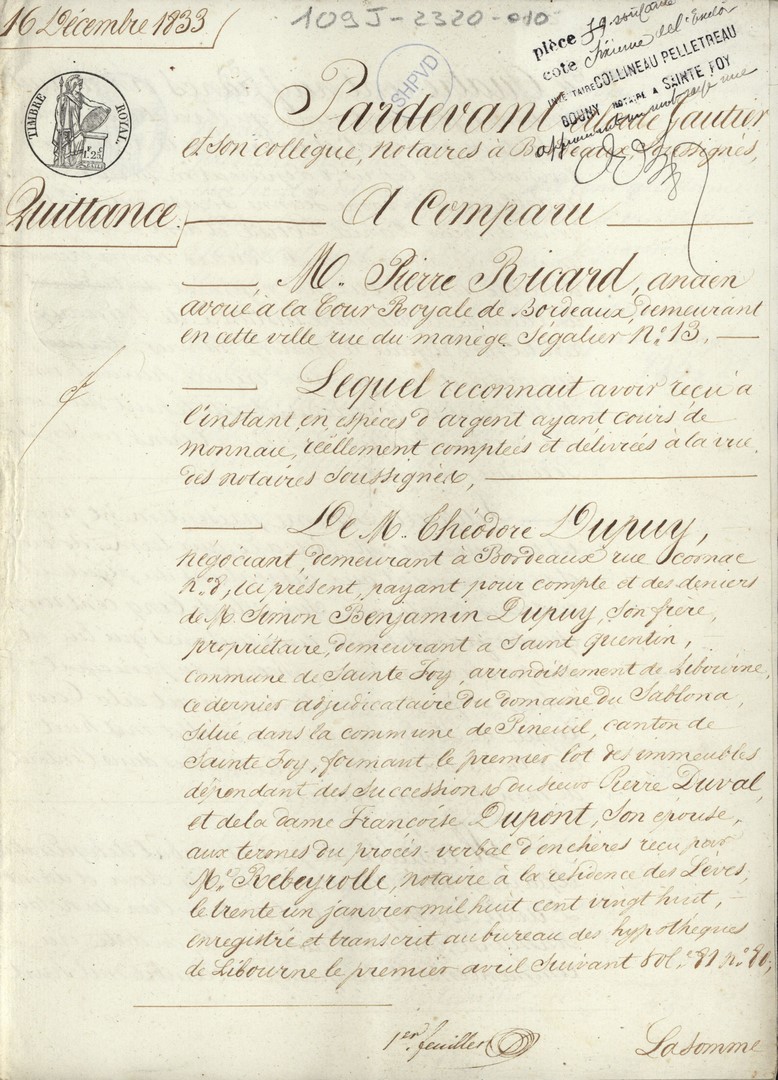 16 Décembre 1833
109 J-2320-010
pièce 79 soixante
cote
INVENTAIRE COLLINEAU PELLETREAU
GOUNY NOTAIRE A SAINTE FOY
SHPVD
TIMBRE ROYAL.
1.25
Pardevant Gautier
et son collègue, notaires à Bordeaux, soussignés,
Quittance.
A Comparu
M. Pierre Ricard, ancien
avoué à la Cour Royale de Bordeaux, demeurant
en cette ville rue du manège Ségalier N.º 13,
Lequel reconnait avoir reçu à
l'instant en espèces d'argent ayant cours de
monnaie, réellement comptées et délivrées à la vue
des notaires soussignés,
De M. Théodore Dupuy,
négociant, demeurant à Bordeaux rue Cornac
n.º 8, ici présent, payant pour compte et des deniers
de M. Simon Benjamin Dupuy, son frère,
propriétaire, demeurant à Saint Quentin,
commune de Sainte Foy, arrondissement de Libourne,
ce dernier adjudicataire du domaine du Sablona,
situé dans la commune de Pineuil, canton de
Sainte Foy, formant le premier lot des immeubles
dépendant des successions du sieur Pierre Duval,
et de la dame Françoise Dupont, son épouse,
aux termes du procès-verbal d'enchères reçu par
M.e Rebeyrolle, notaire à la résidence des Lèves,
le trente un janvier mil huit cent vingt huit,
enregistré et transcrit au bureau des hypothèques
de Libourne le premier avril suivant vol.
1.er feuillet
La somme